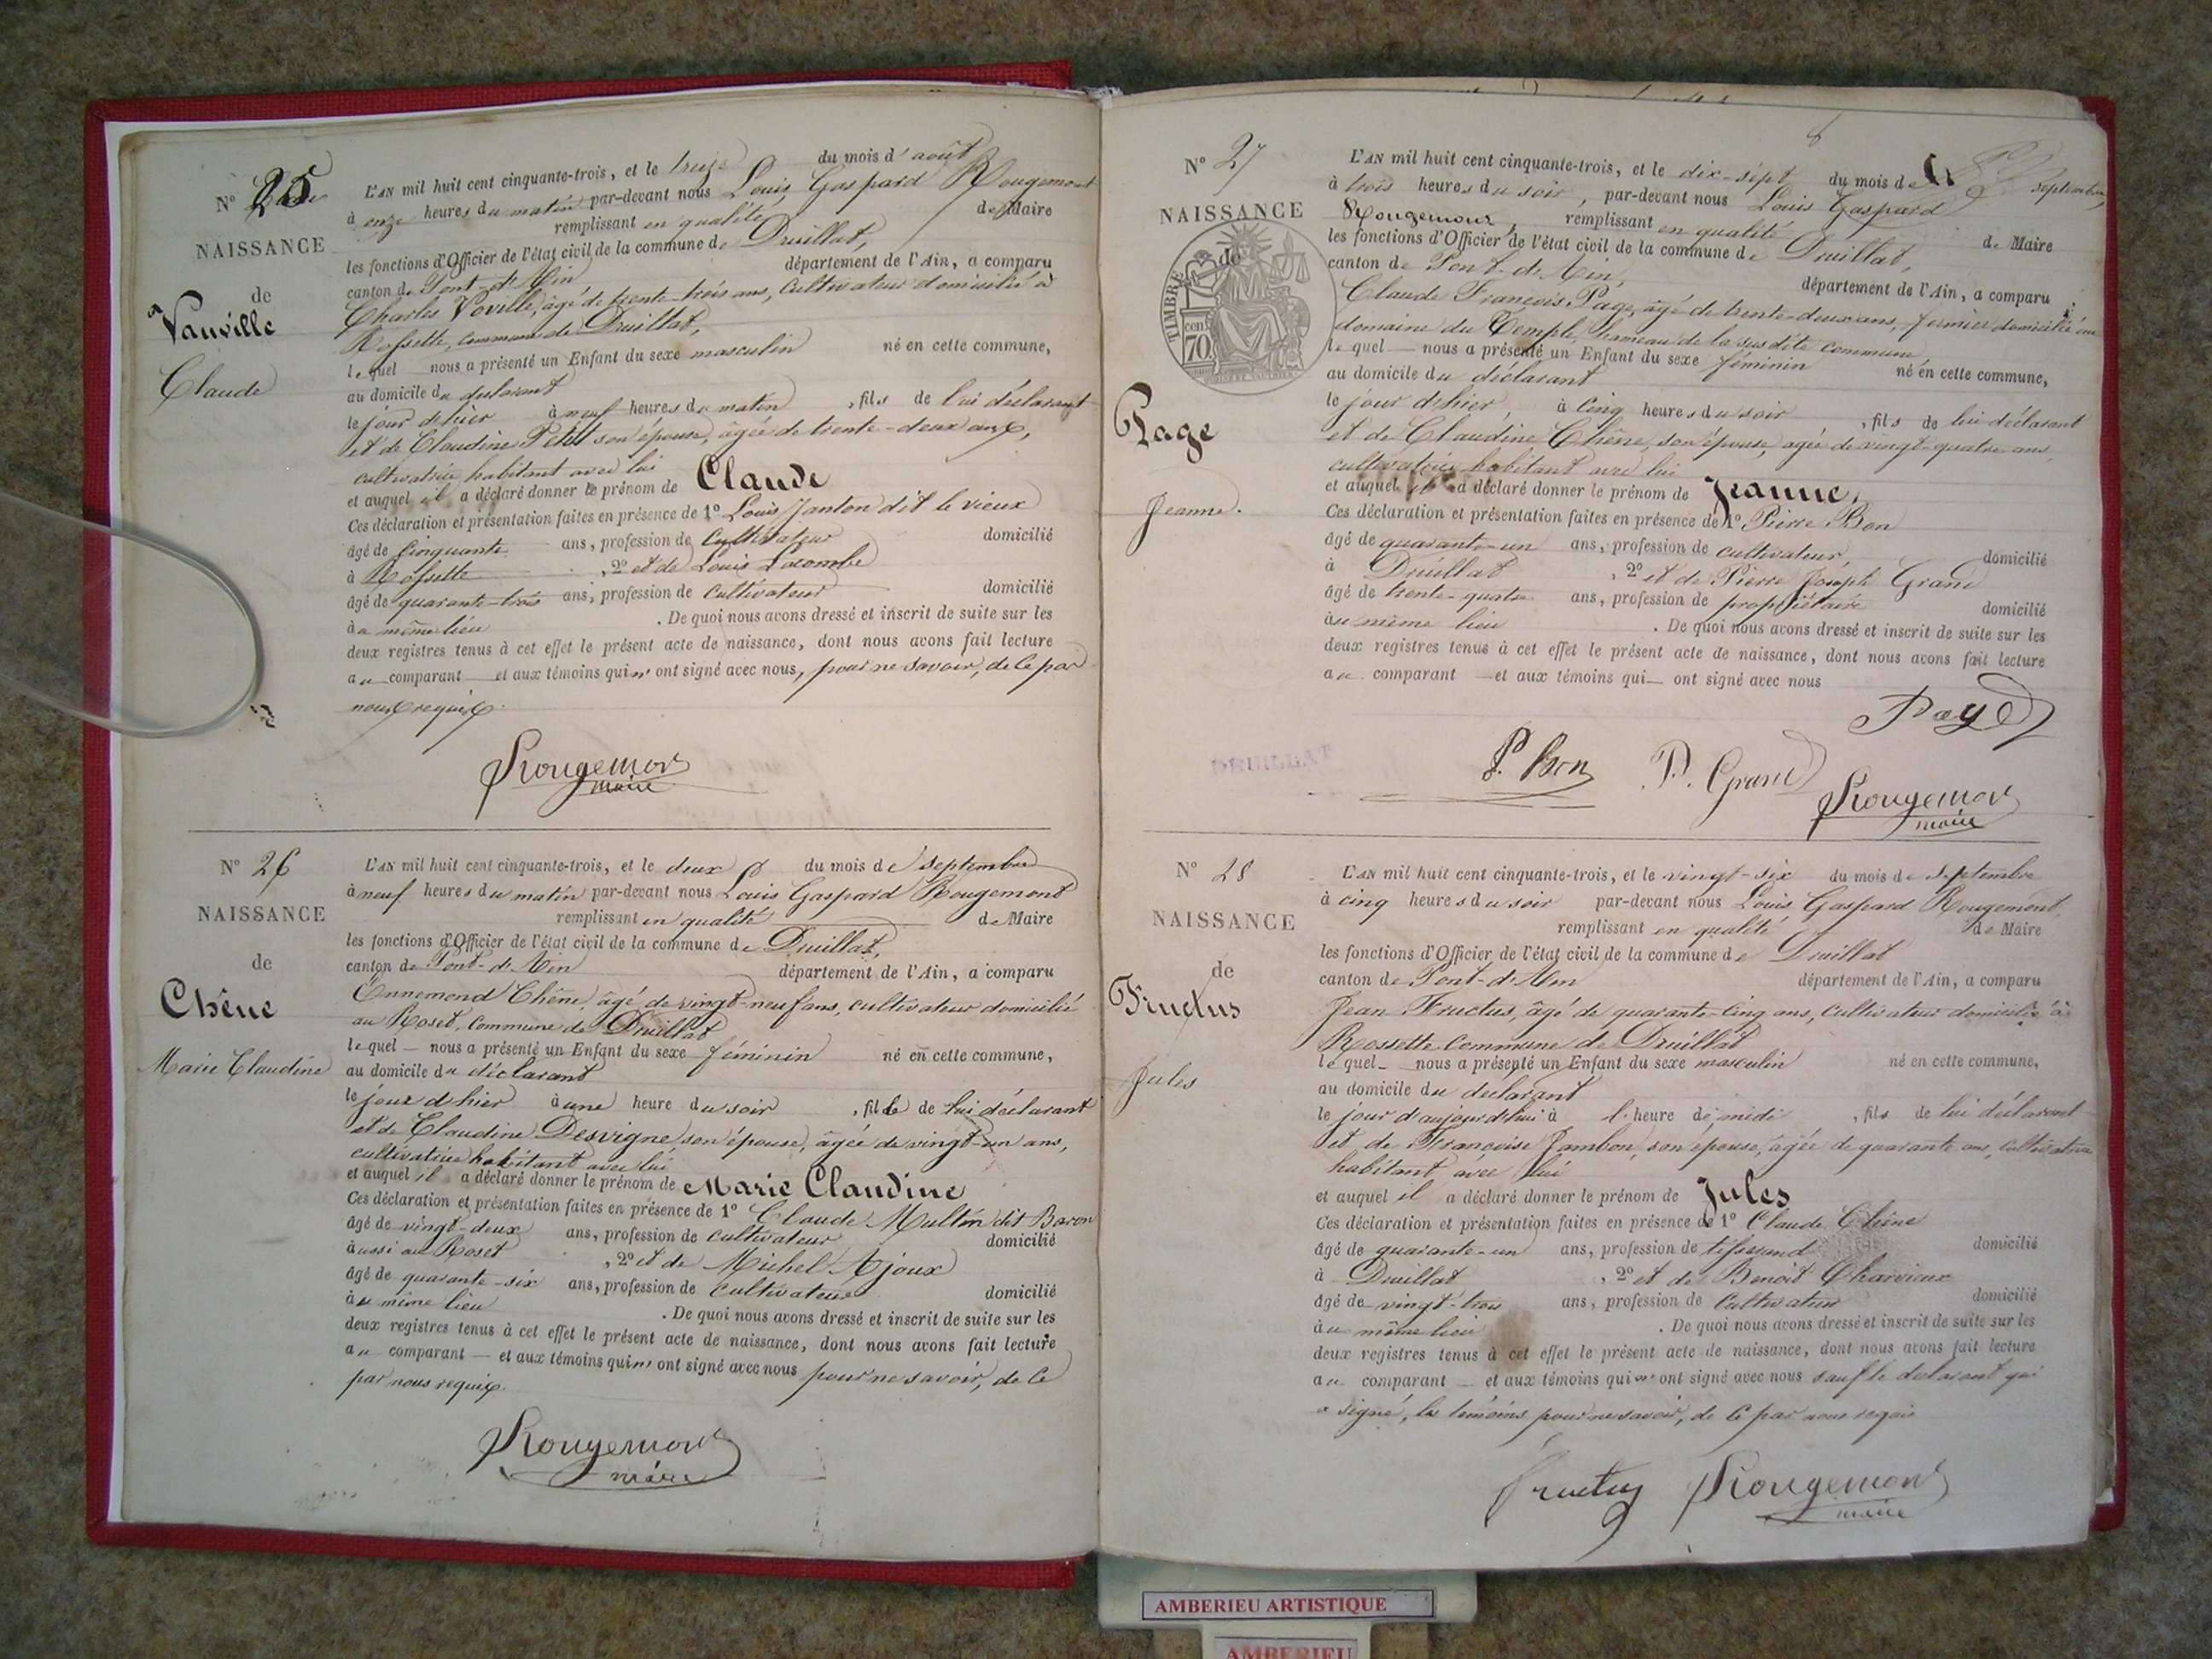 Nº 25
NAISSANCE
de
Vauville
Claude
L'AN mil huit cent cinquante-trois, et le treize du mois d'août
à onze heures du matin par-devant nous Louis Gaspard Rougemont
remplissant en qualité de Maire
les fonctions d'Officier de l'état civil de la commune de Druillat,
canton de Pont-d'Ain département de l'Ain, a comparu
Charles Voville, âgé de trente-trois ans, Cultivateur domicilié à
Rossette, commune de Druillat,
lequel nous a présenté un Enfant du sexe masculin né en cette commune,
au domicile du déclarant
le jour d'hier à neuf heures du matin, fils de lui déclarant
et de Claudine Petit son épouse, âgée de trente-deux ans,
cultivatrice habitant avec lui
et auquel il a déclaré donner le prénom de Claude
Ces déclaration et présentation faites en présence de 1º Louis Janton dit le vieux
âgé de Cinquante ans, profession de Cultivateur domicilié
à Rossette, 2º et de Louis Lacombe
âgé de quarante-trois ans, profession de Cultivateur domicilié
au même lieu. De quoi nous avons dressé et inscrit de suite sur les
deux registres tenus à cet effet le présent acte de naissance, dont nous avons fait lecture
au comparant et aux témoins qui n'ont signé avec nous, pour ne savoir, de ce par
nous requis.
Rougemont
maire
Nº 26
NAISSANCE
de
Chêne
Marie Claudine
L'AN mil huit cent cinquante-trois, et le deux du mois de septembre
à neuf heures du matin par-devant nous Louis Gaspard Rougemont
remplissant en qualité de Maire
les fonctions d'Officier de l'état civil de la commune de Druillat,
canton de Pont-d'Ain département de l'Ain, a comparu
Ennemond Chêne, âgé de vingt-neuf ans, cultivateur domicilié
au Roset, Commune de Druillat
lequel nous a présenté un Enfant du sexe féminin né en cette commune,
au domicile du déclarant
le jour d'hier à une heure du soir, fille de lui déclarant
et de Claudine Desvigne son épouse, âgée de vingt-un ans,
cultivatrice habitant avec lui
et auquel il a déclaré donner le prénom de Marie Claudine
Ces déclaration et présentation faites en présence de 1º Claude Multin dit Baron
âgé de vingt-deux ans, profession de cultivateur domicilié
aussi au Roset, 2º et de Michel Ajoux
âgé de quarante-six ans, profession de Cultivateur domicilié
au même lieu. De quoi nous avons dressé et inscrit de suite sur les
deux registres tenus à cet effet le présent acte de naissance, dont nous avons fait lecture
au comparant et aux témoins qui n'ont signé avec nous pour ne savoir, de ce
par nous requis.
Rougemont
maire
Nº 27
NAISSANCE
de
TIMBRE
70 cen
Page
Jeanne.
L'AN mil huit cent cinquante-trois, et le dix-sept du mois de septembre,
à trois heures du soir, par-devant nous Louis Gaspard
Rougemont, remplissant en qualité de Maire
les fonctions d'Officier de l'état civil de la commune de Druillat,
canton de Pont-d'Ain, département de l'Ain, a comparu
Claude François Page, âgé de trente-deux ans, fermier domicilié au
domaine du Temple, hameau de la susdite commune,
lequel nous a présenté un Enfant du sexe féminin né en cette commune,
au domicile du déclarant
le jour d'hier, à Cinq heures du soir, fils de lui déclarant
et de Claudine Chêne, son épouse, âgée de vingt-quatre ans,
cultivatrice habitant avec lui
et auquel il a déclaré donner le prénom de Jeanne,
Ces déclaration et présentation faites en présence de 1º Pierre Bon
âgé de quarante-un ans, profession de cultivateur, domicilié
à Druillat, 2º et de Pierre Joseph Grand
âgé de trente-quatre ans, profession de propriétaire domicilié
au même lieu. De quoi nous avons dressé et inscrit de suite sur les
deux registres tenus à cet effet le présent acte de naissance, dont nous avons fait lecture
au comparant et aux témoins qui ont signé avec nous
Page
P. Bon P. Grand Rougemont
maire
DRUILLAT
Nº 28
NAISSANCE
de
Fructus
Jules
L'AN mil huit cent cinquante-trois, et le vingt-six du mois de Septembre
à cinq heures du soir par-devant nous Louis Gaspard Rougemont,
remplissant en qualité de Maire
les fonctions d'Officier de l'état civil de la commune de Druillat
canton de Pont-d'Ain département de l'Ain, a comparu
Jean Fructus, âgé de quarante-Cinq ans, Cultivateur domicilié à
Rossette Commune de Druillat
lequel nous a présenté un Enfant du sexe masculin né en cette commune,
au domicile du déclarant
le jour d'aujourd'hui à l'heure de midi, fils de lui déclarant
et de Françoise Jambon, son épouse, âgée de quarante ans, Cultivatrice
habitant avec lui
et auquel il a déclaré donner le prénom de Jules
Ces déclaration et présentation faites en présence de 1º Claude Chêne
âgé de quarante-un ans, profession de tisserand domicilié
à Druillat, 2º et de Benoit Charvieux
âgé de vingt-trois ans, profession de Cultivateur domicilié
au même lieu. De quoi nous avons dressé et inscrit de suite sur les
deux registres tenus à cet effet le présent acte de naissance, dont nous avons fait lecture
au comparant et aux témoins qui n'ont signé avec nous sauf le déclarant qui
a signé, les témoins pour ne savoir, de ce par nous requis
Fructus Rougemont
maire
AMBERIEU ARTISTIQUE
AMBERIEU